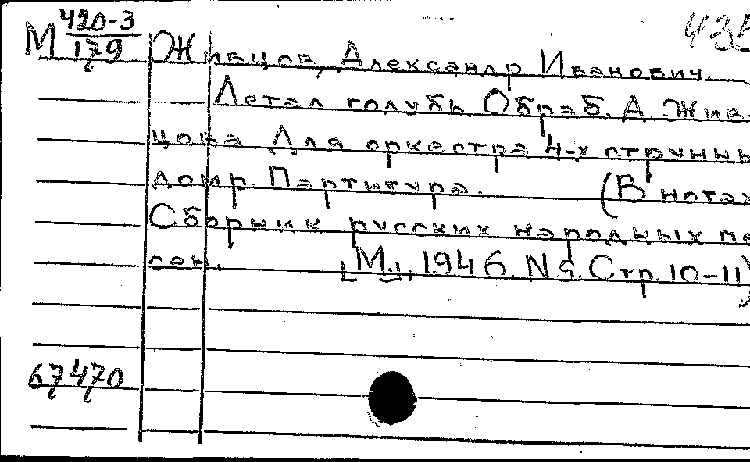 М 420-3
179
435
Живцов, Александр Иванович.
Летал голубь Обраб. А Жив-
цова Для оркестра 4-х струнны
домр Партитура. (В нотах
Сборник русских народных пе
сен. [М.], 1946 N 9. Стр. 10-11)
67470